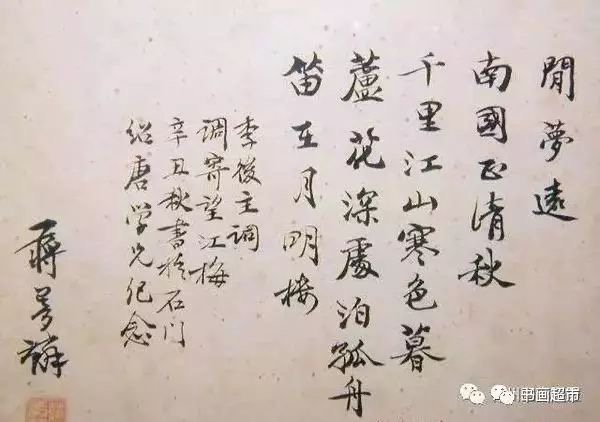 閒夢遠
南國正清秋
千里江山寒色暮
蘆花深處泊孤舟
笛在月明樓
李後主調
調寄望江梅
辛丑秋書於石门
绍唐学兄纪念
蔣夢麟
州书画超市